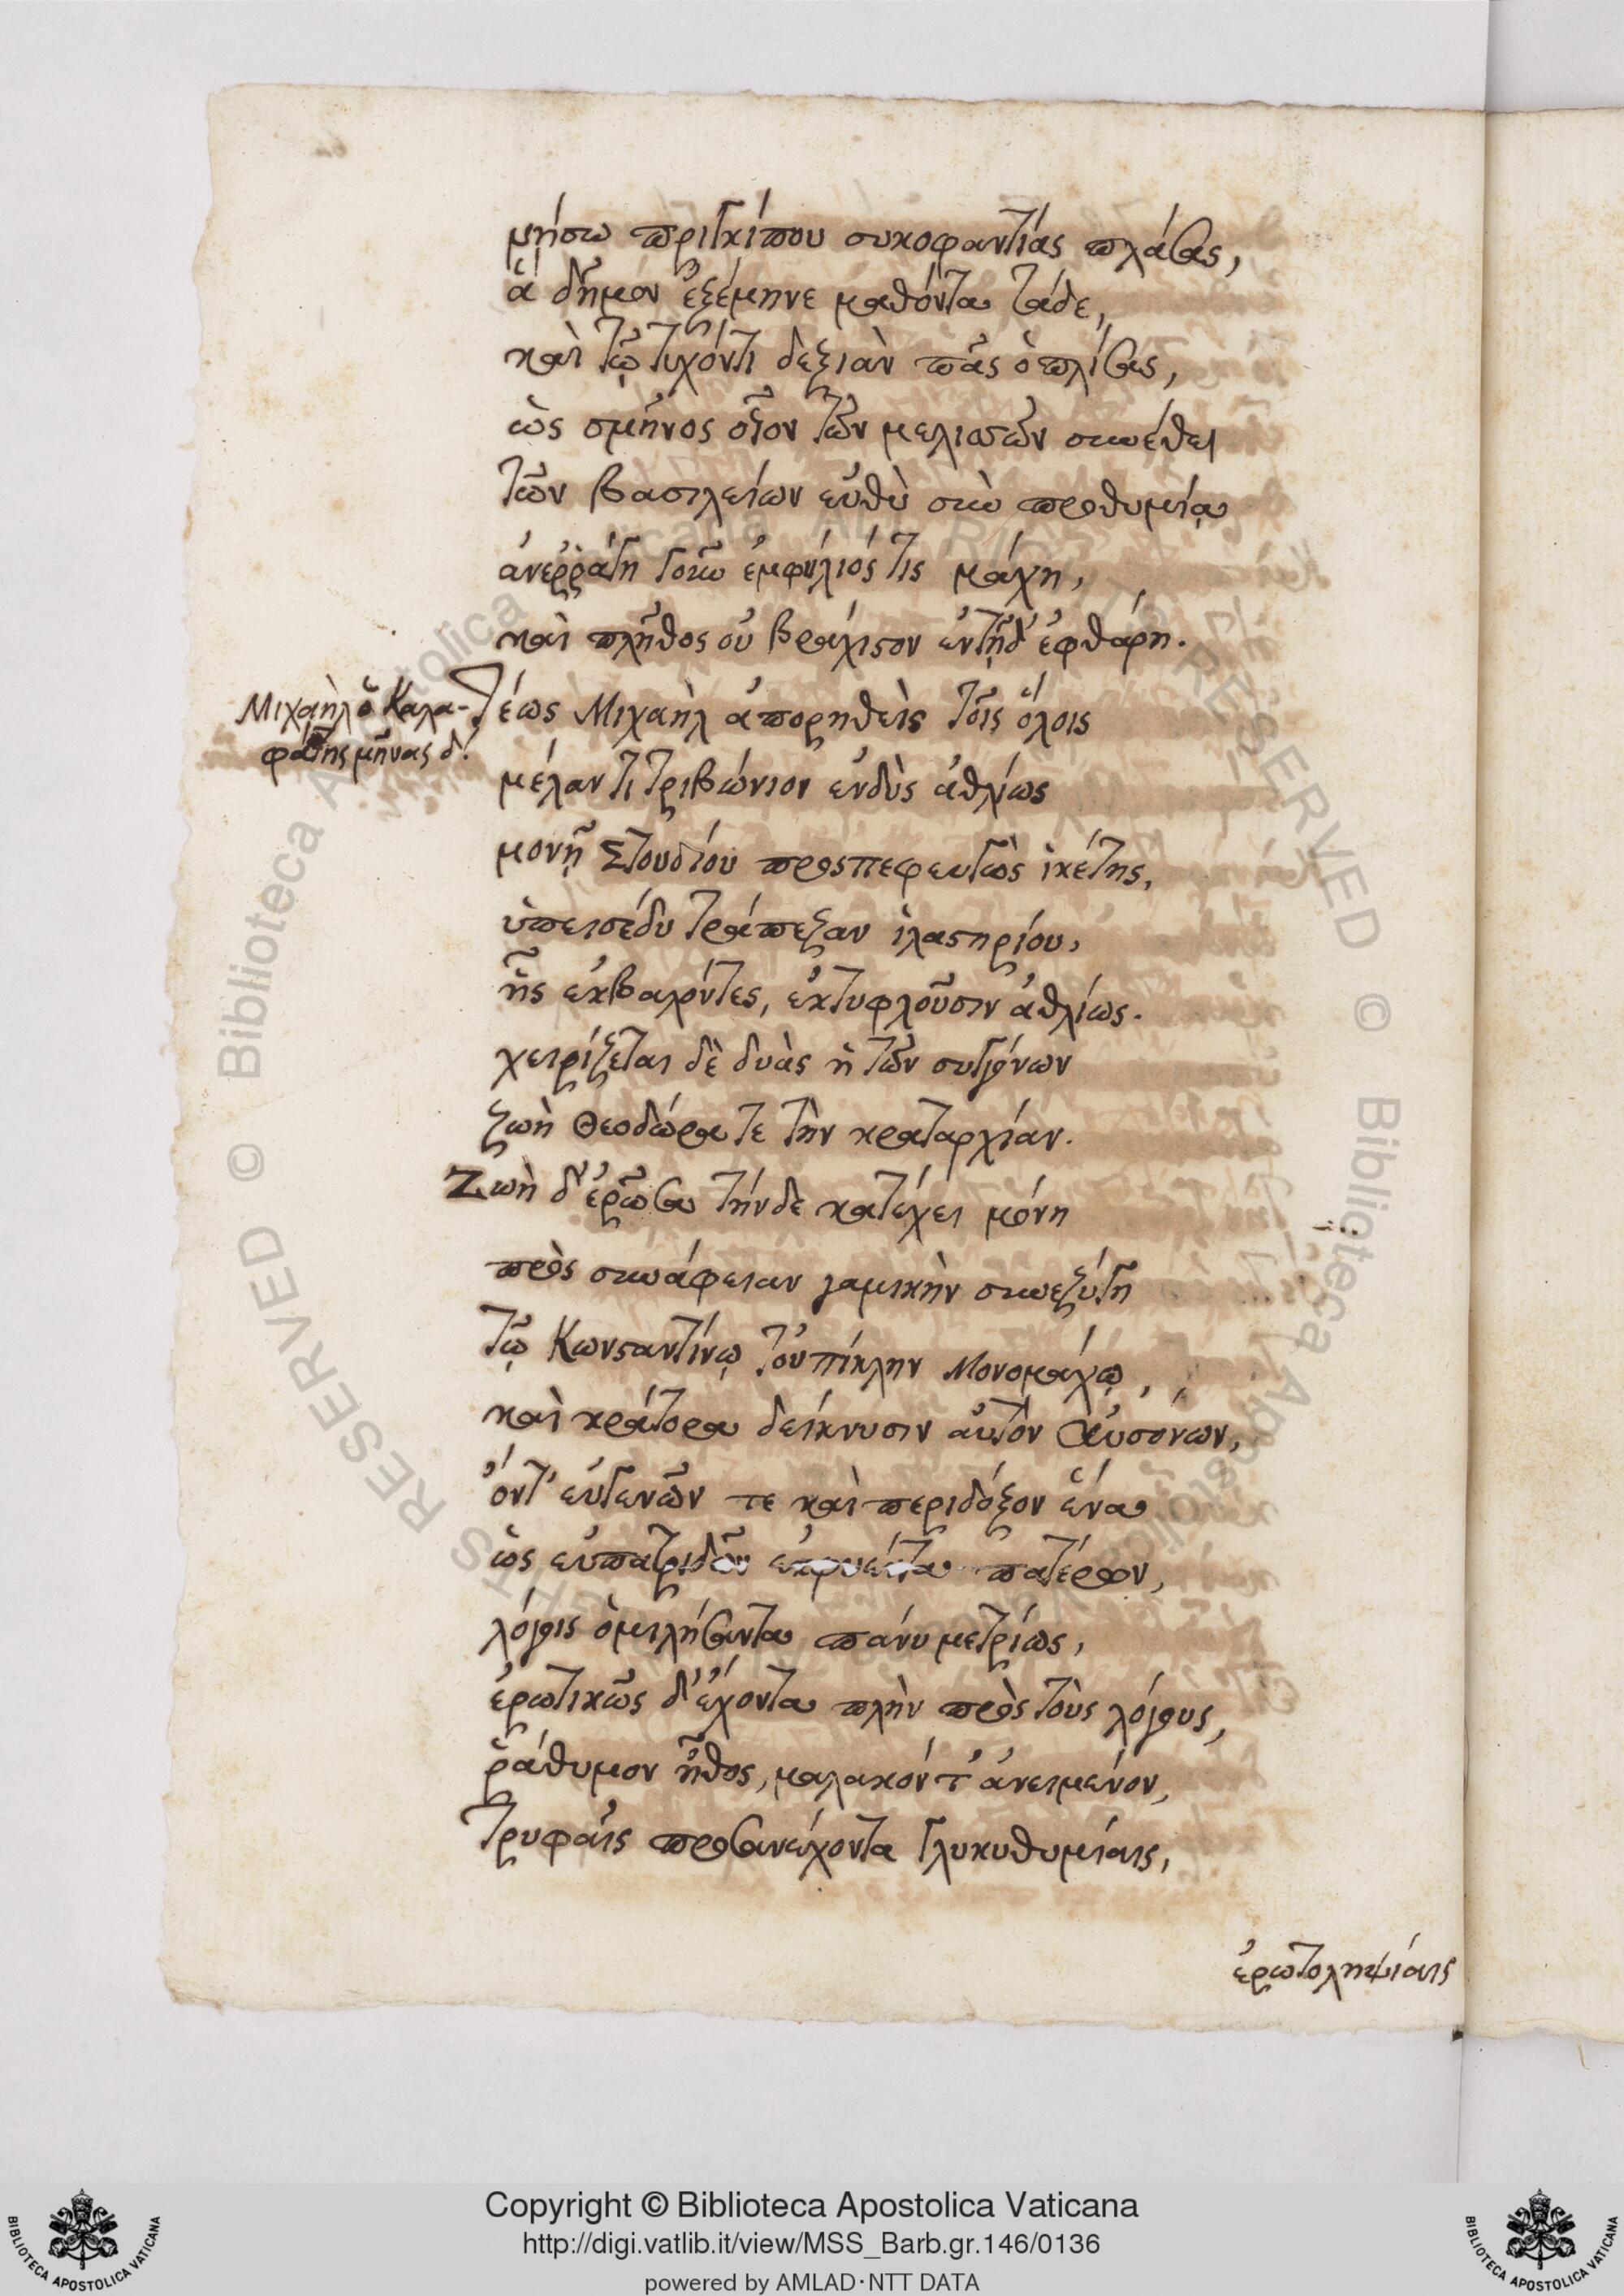 μήσω πριγκίπου συκοφαντίας πλάσας,
ἃ δῆμον ἐξέμηνε μαθόντα τάδε,
καὶ τῷ τυχόντι δεξιὰν πᾶς ὁπλίσας,
ὡς σμῆνος οἷον τῶν μελισσῶν συνέθει
τῶν βασιλείων εὐθὺ σὺν προθυμίᾳ
ἀνεῤῥάγη γοῦν ἐμφύλιός τις μάχη,
καὶ πλῆθος οὐ βράχιστον ἐν τῇδ' ἐφθάρη.
Μιχαὴλ ὁ Καλα-
φάτης μῆνας δ΄.
Τέως Μιχαὴλ ἀπορηθεὶς τοῖς ὅλοις
μέλαν τι τριβώνιον ἐνδὺς ἀθλίως
μονῇ Στουδίου προςπεφευγὼς ἱκέτης,
ὑπεισέδυ τράπεζαν ἱλαστηρίου,
ἧς ἐκβαλόντες, ἐκτυφλοῦσιν ἀθλίως.
χειρίζεται δὲ δυὰς ἡ τῶν συγγόνων
ζωὴ Θεοδώρα τε τὴν κραταρχίαν.
Ζωὴ δ' ἐρῶσα τήνδε κατέχει μόνη
πρὸς συνάφειαν γαμικὴν συνεζύγη
τῷ Κωνσταντίνῳ τοὐπίκλην Μονομάχῳ,
καὶ κράτορα δείκνυσιν αὐτὸν Αὐσόνων,
ὄντ' εὐγενῶν τε καὶ περιδόξον ἕνα
ὡς εὐπατριδῶν ἐκφυέντα πατέρων,
λόγοις ὁμιλήσαντα πάνυ μετρίως,
ἐρωτικῶς δ' ἔχοντα πλὴν πρὸς τοὺς λόγους,
ῥάθυμον ἦθος, μαλακόν τ' ἀνειμένον,
τρυφαῖς προσανέχοντα γλυκυθυμίαις,
ἐρωτοληψίαις
Copyright © Biblioteca Apostolica Vaticana
http://digi.vatlib.it/view/MSS_Barb.gr.146/0136
powered by AMLAD·NTT DATA